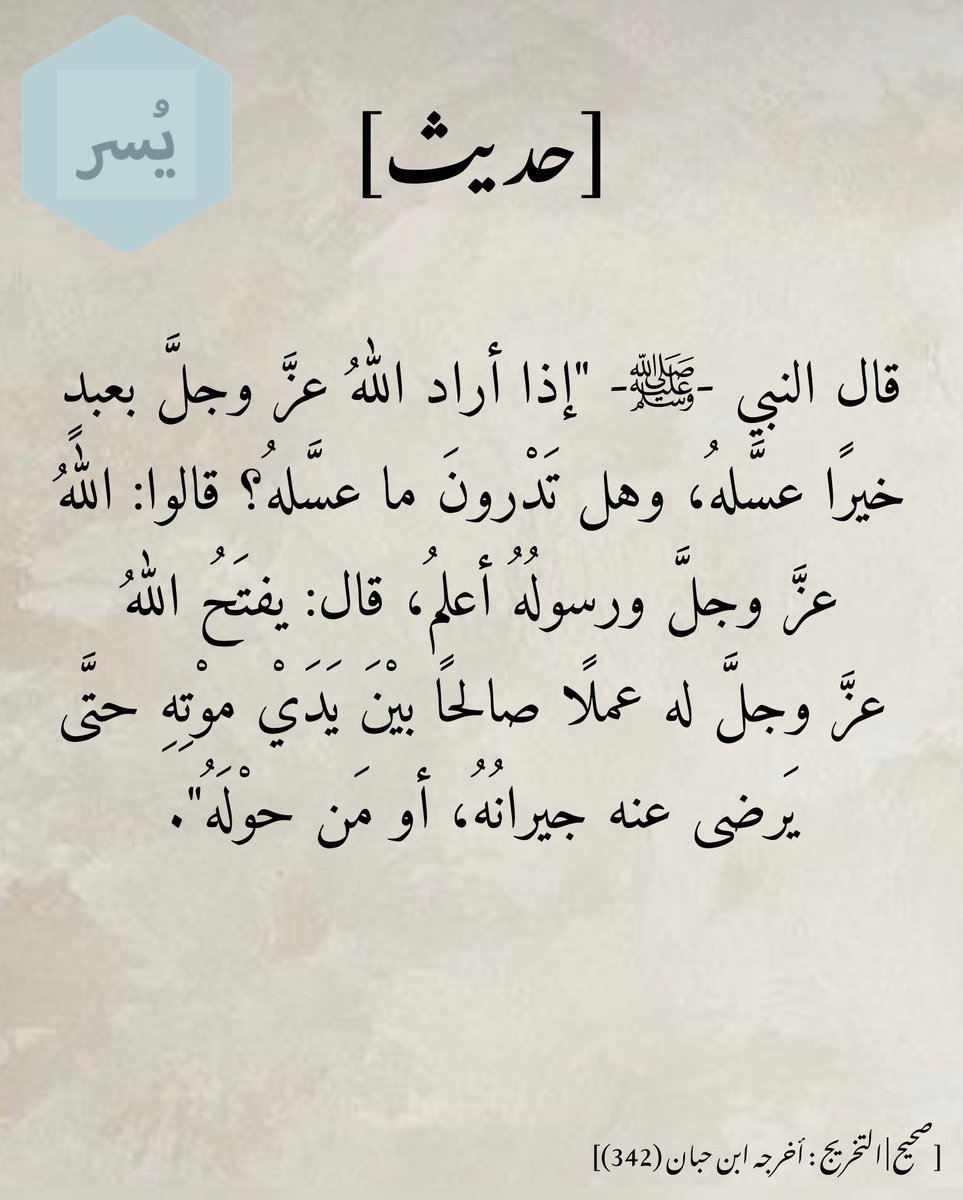 يُسر
[حديث]
قال النبي -ﷺ- "إذا أراد اللهُ عزَّ وجلَّ بعبدٍ
خيرًا عسَّلهُ، وهل تَدْرونَ ما عسَّلهُ؟ قالوا: اللهُ
عزَّ وجلَّ ورسولُهُ أعلمُ، قال: يفتَحُ اللهُ
عزَّ وجلَّ له عملًا صالحًا بيْنَ يَدَيْ موْتِهِ حتَّى
يَرضى عنه جيرانُهُ، أو مَن حوْلَهُ".
[صحيح|التخريج : أخرجه ابن حبان (342)]